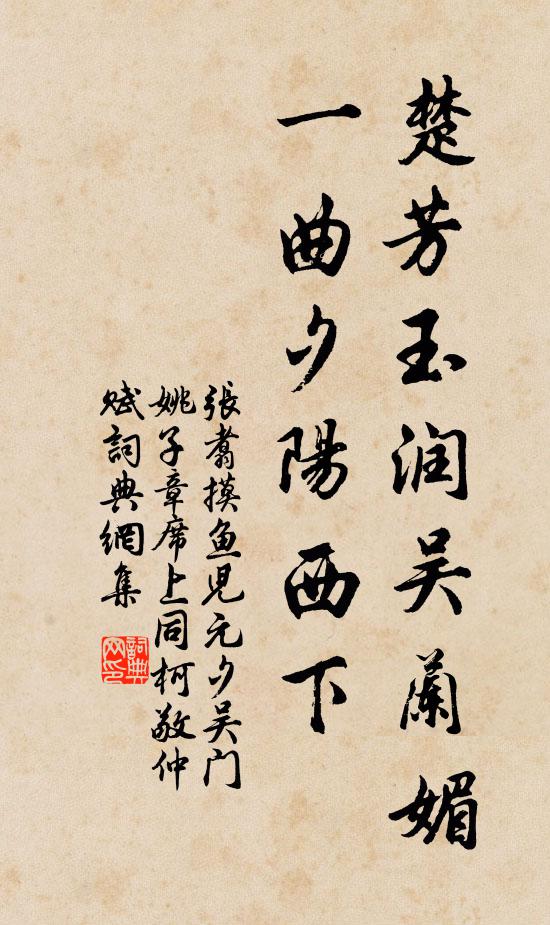 楚芳玉润吴蘭媚
一曲夕陽西下
張翥摸魚児元夕吴门
姚子章席上同柯敬仲
赋詞典網集
詞典网印